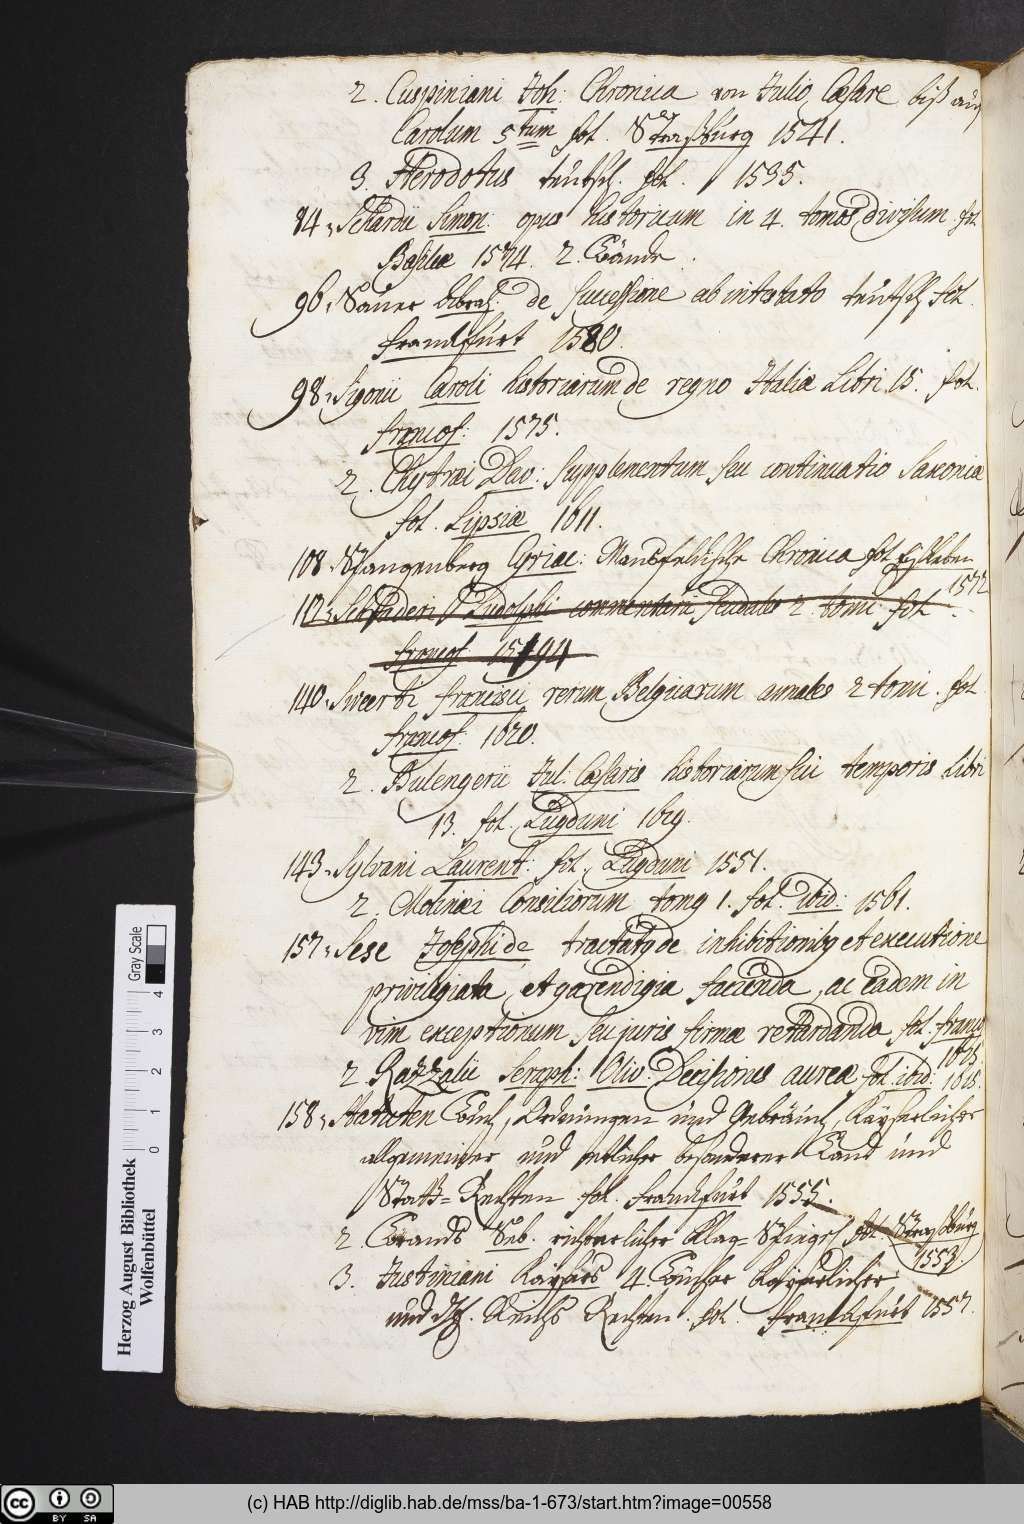 2. Cuspiniani Joh: Chronica von Julio Cæsare biß auf
Carolum 5tum fol. Straßburg 1541.
3. Herodotus teutsch. fol. 1535.
84. Schardii Simon: opus historicum in 4. tomos divisum fol.
Basileæ 1574. 2. Bände.
96. Sauer Abrah. de successione ab intestato teutsch fol.
Franckfurt 1580.
98. Sigonii Caroli historiarum de regno Italiæ Libri 15. fol.
Francof: 1575.
2. Chytræi Dav: Supplementum seu continuatio Saxoniæ
fol. Lipsiæ 1611.
108. Spangenberg Cyriac: Mansfeldische Chronica fol. Eisleben
1572
Schraderi Ludolphi commentarii feudales 2 tomi fol.
Francof: 1594
140. Sweerti Francisci rerum Belgicarum annales 2 tomi. fol.
Francof: 1620.
2. Bulengerii Jul: Cæsaris historiarum sui temporis Libri
13. fol. Lugduni 1619.
143. Sylvani Laurent: fol. Lugduni 1551.
2. Molinæi Consiliorum tomq 1. fol. ibid: 1561.
157. Sese Josephi de tractatq de inhibitionibq et executione
privilegiata, et gazendigia facienda, ac eadem in
vim exceptionum seu juris firmæ retardanda fol. Franco
1615.
2. Razzalii Seraph: Oliv: Decisiones aureæ fol. ibid: 1615.
158. Statuten Buch, Ordnungen und Gebräuch, Kayserlicher
allgemeiner und etlicher besonderer Land und
Statt-Rechten fol. Franckfurt 1555.
2. Brands Seb. richterlicher Klag-Spiegel fol. Straßburg
1553.
3. Justiniani Kaysers 4. Bücher Kayserlicher
und Reichs Rechten. fol. Franckfurt 1557.
Gray Scale
0 1 2 3 4
Herzog August Bibliothek
Wolfenbüttel
(c) HAB http://diglib.hab.de/mss/ba-1-673/start.htm?image=00558
CC BY SA